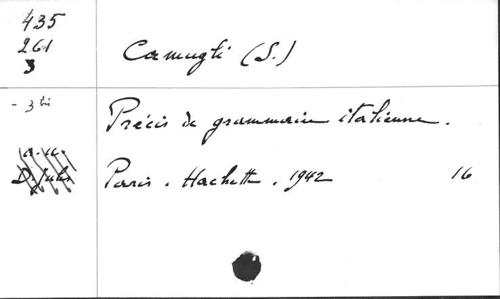 435
261
3
Camugli (S.)
- 3 bis
Précis de grammaire italienne.
a.u.
Paris. Hachette. 1942 16